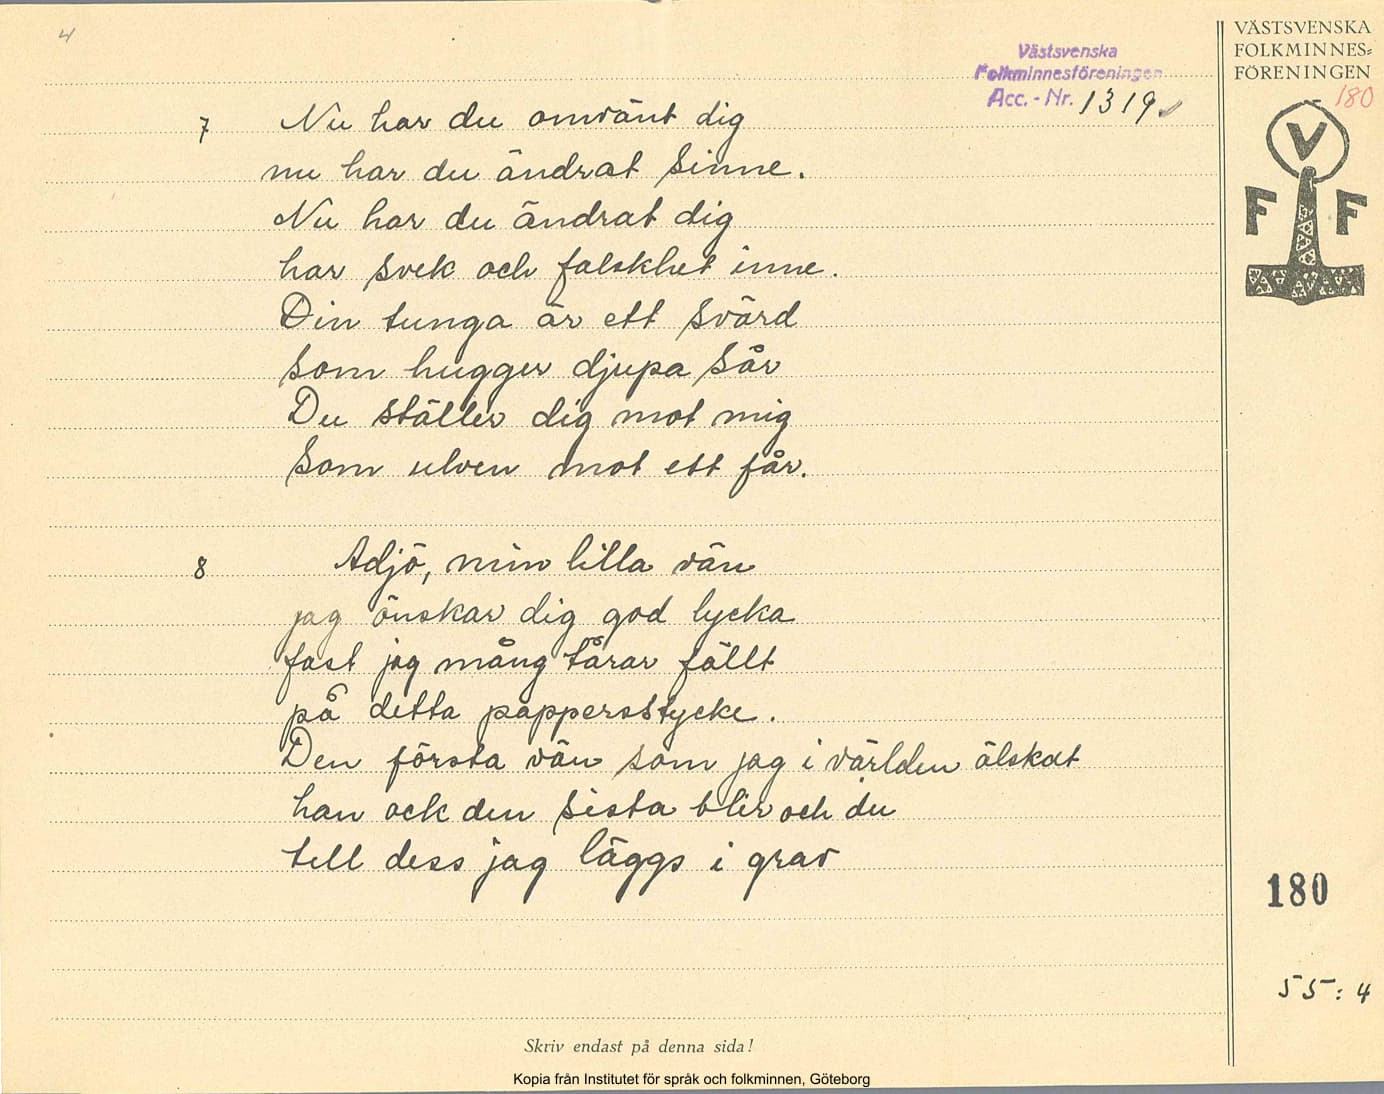 4
Västsvenska
Folkminnesföreningen
Acc. - Nr. 1319
VÄSTSVENSKA
FOLKMINNES=
FÖRENINGEN
180
V
F F
7 Nu har du omvänt dig
nu har du ändrat sinne.
Nu har du ändrat dig
har svek och falskhet inne.
Din tunga är ett svärd
som hugger djupa sår
Du ställer dig mot mig
som ulven mot ett får.
8 Adjö, min lilla vän
jag önskar dig god lycka
fast jag mång tårar fällt
på detta pappersstycke.
Den första vän som jag i världen älskat
han ock den sista blir och du
till dess jag läggs i grav
180
55:4
Skriv endast på denna sida!
Kopia från Institutet för språk och folkminnen, Göteborg